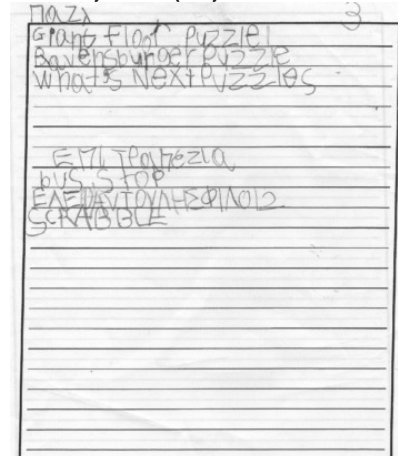 Παζλ 3
Giant Floor Puzzle
Ravensburger Puzzle
What's Next Puzzles
Επιτραπεζια
bus stop
ΕΛΕΦΑΝΤΟΥΛΗΣΦΙΛΟΙ2
SCRABBLE